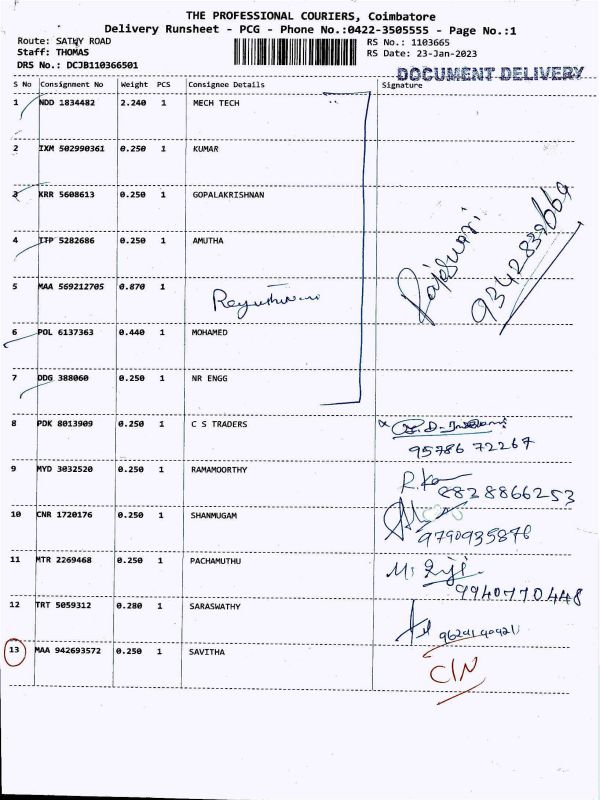 THE PROFESSIONAL COURIERS, Coimbatore
Delivery Runsheet - PCG - Phone No.:0422-3505555 - Page No.:1
Route: SATHY ROAD RS No.: 1103665
Staff: THOMAS RS Date: 23-Jan-2023
DRS No.: DCJB110366501 DOCUMENT DELIVERY
S No Consignment No Weight PCS Consignee Details Signature
1 NDD 1834482 2.240 1 MECH TECH
2 IXM 502990361 0.250 1 KUMAR
3 KRR 5608613 0.250 1 GOPALAKRISHNAN
4 ITP 5282686 0.250 1 AMUTHA
Rajeswari
9342839669
5 MAA 569212705 0.870 1
6 POL 6137363 0.440 1 MOHAMED
7 DDG 388060 0.250 1 NR ENGG
8 PDK 8013909 0.250 1 C S TRADERS
95786 72267
9 MYD 3032520 0.250 1 RAMAMOORTHY
8828866253
10 CNR 1720176 0.250 1 SHANMUGAM
9790935876
11 MTR 2269468 0.250 1 PACHAMUTHU
9940770448
12 TRT 5059312 0.280 1 SARASWATHY
13 MAA 942693572 0.250 1 SAVITHA
C/N